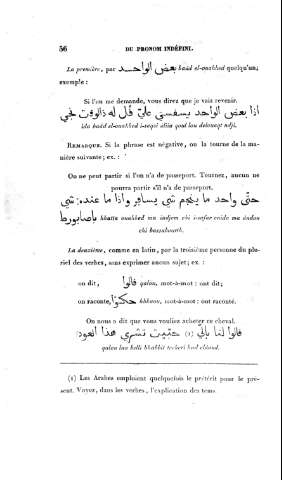 56 DU PRONOM INDÉFINI.
La première, par بعض الواحد baâd el-ouahhed quelqu'un;
exemple :
Si l'on me demande, vous direz que je vais revenir.
اذا بعض الواحد يسقسي عليّ قل له ذالوقت نجي
ida baâd el-ouahhed i-seqsi aliia qoul lou delouaqt ndji.
REMARQUE. Si la phrase est négative, on la tourne de la ma-
nière suivante; ex. :
On ne peut partir si l'on n'a de passeport. Tournez, aucun ne
pourra partir s'il n'a de passeport.
حتّى واحد ما ينجم شي يسافر واذا ما عنده شي
باصابورط hhatta ouahhed ma indjem chi i-safar ouida ma ândou
chi bassabourth.
La deuxième, comme en latin, par la troisième personne du plu-
riel des verbes, sans exprimer aucun sujet; ex. :
on dit, قالوا qalou, mot-à-mot : ont dit;
on raconte, حكوا hhkaou, mot-à-mot : ont raconté.
On nous a dit que vous vouliez acheter ce cheval.
قالوا لنا بالّي (1) حبّيت تشري هذا العود
qalou lna belli hhabbit techeri had elâoud.
(1) Les Arabes emploient quelquefois le prétérit pour le pré-
sent. Voyez, dans les verbes, l'explication des tems.